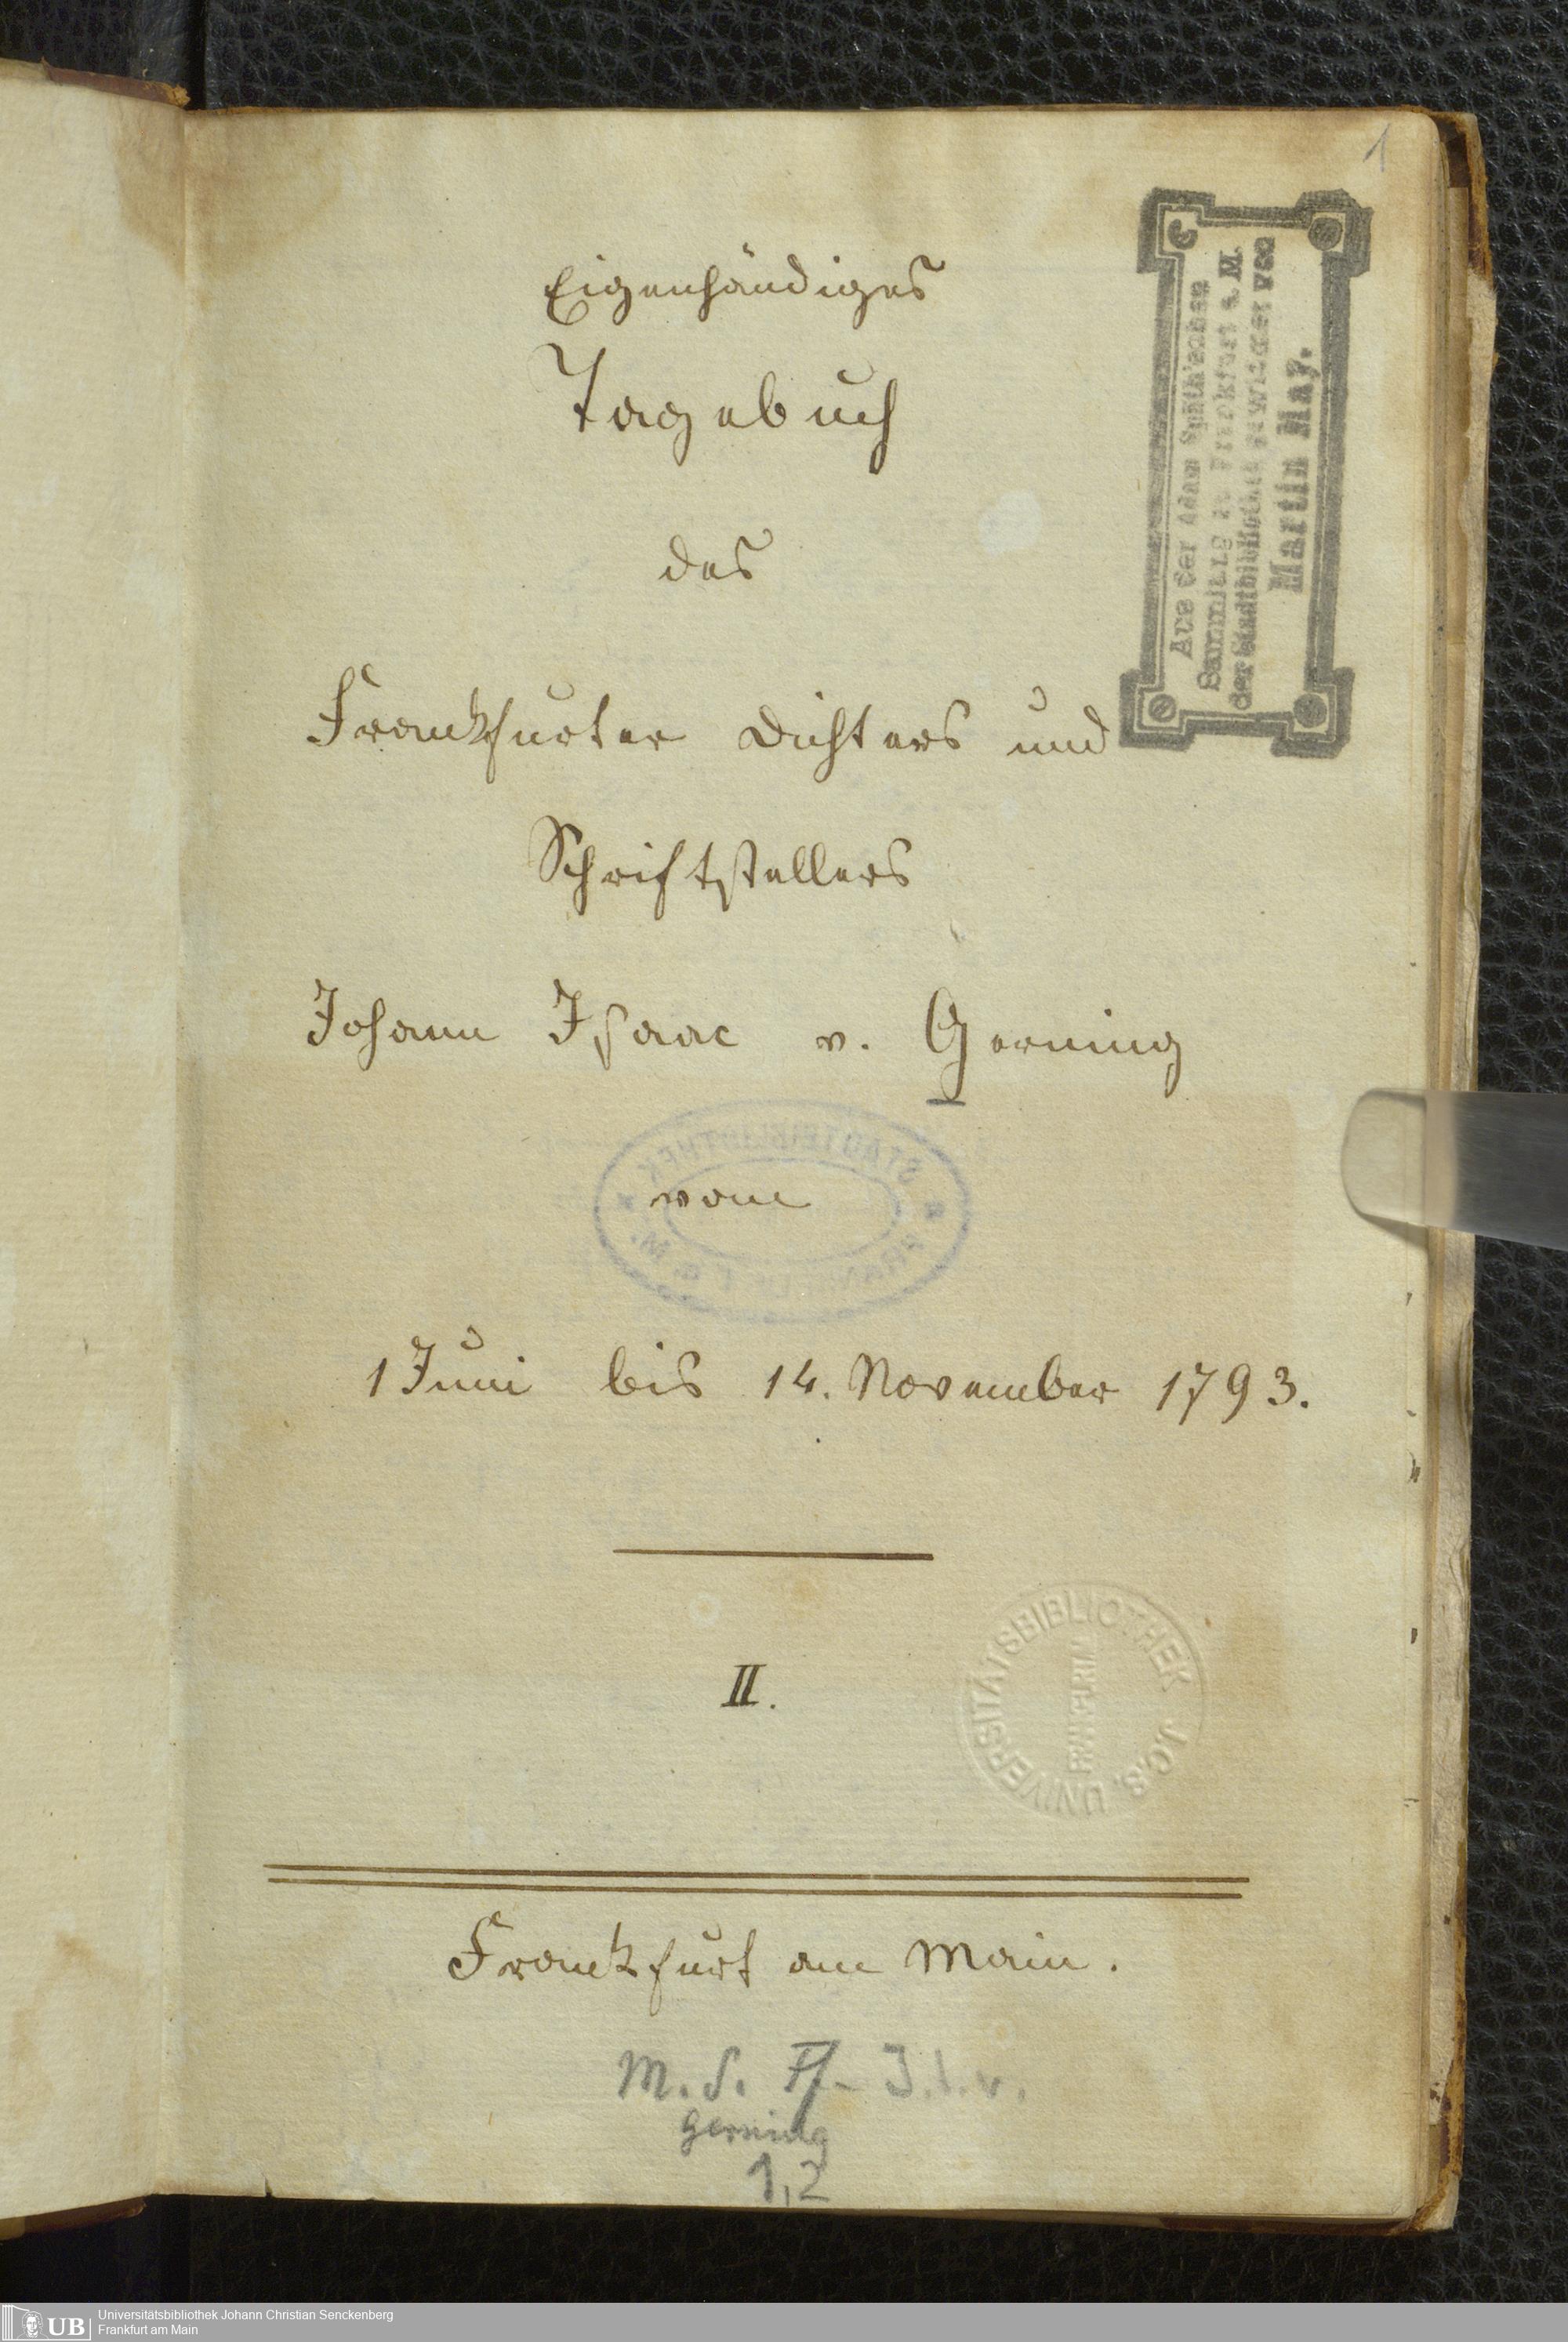 1
Eigenhändiges
Tagebuch
des
Franckfurter Dichters und
Schriftstellers
Johann Isaac v. Gerning
vom
1 Juni bis 14. November 1793.
II.
Franckfurt am Main.
M. S. Ff. J. I. v.
Gerning
1,2
Aus der Adam Späth'schen
Sammlung zu Frankfurt a. M.
der Stadtbibliothek gewidmet von
Martin May.
STADTBIBLIOTHEK
FRANKFURT a. M.
UNIVERSITÄTSBIBLIOTHEK J.C.S.
FRANCF.
UB
Universitätsbibliothek Johann Christian Senckenberg
Frankfurt am Main